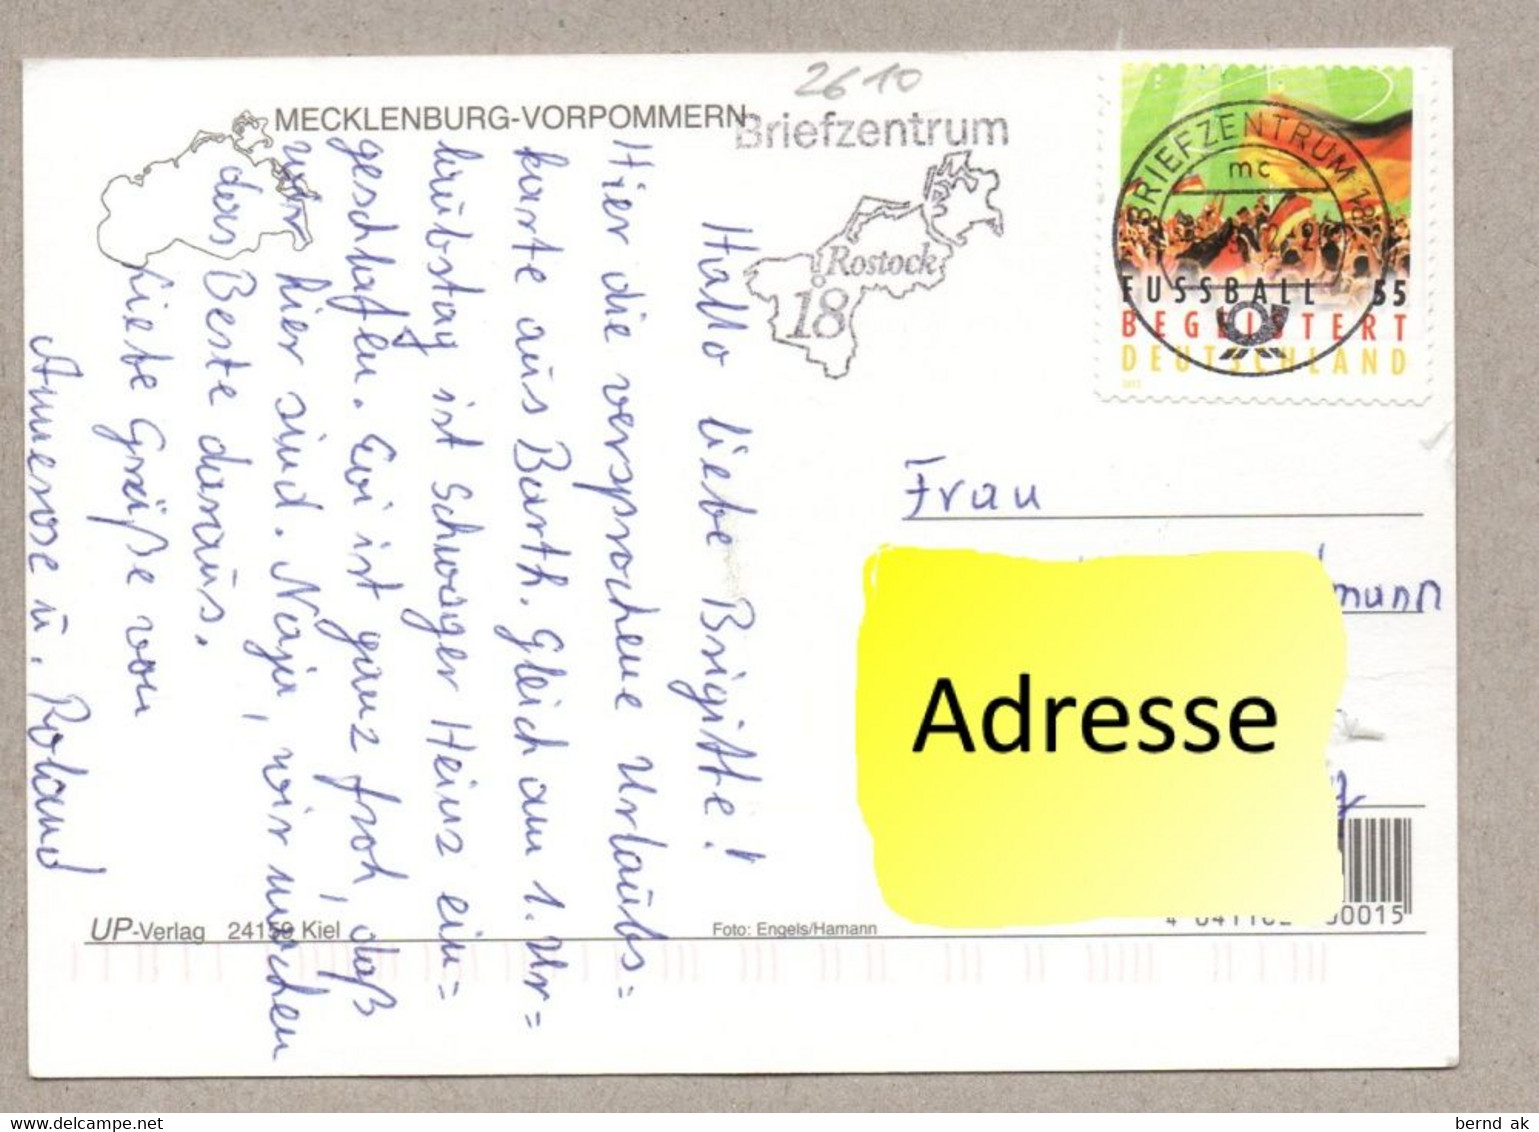 2610
MECKLENBURG-VORPOMMERN
Briefzentrum
Rostock
18
BRIEFZENTRUM 18
mc
FUSSBALL 55
BEGEISTERT
DEUTSCHLAND
Hallo liebe Brigitte!
Hier die versprochene Urlaubs=
karte aus Barth. Gleich am 1. Ur=
laubstag ist Schwager Heinz ein=
geschlafen. Evi ist ganz froh, daß
wir hier sind. Naja, wir machen
das Beste daraus.
Liebe Grüße von
Annerose u. Roland
Frau
mann
Adresse
UP-Verlag 24159 Kiel
Foto: Engels/Hamann
00015
bernd ak